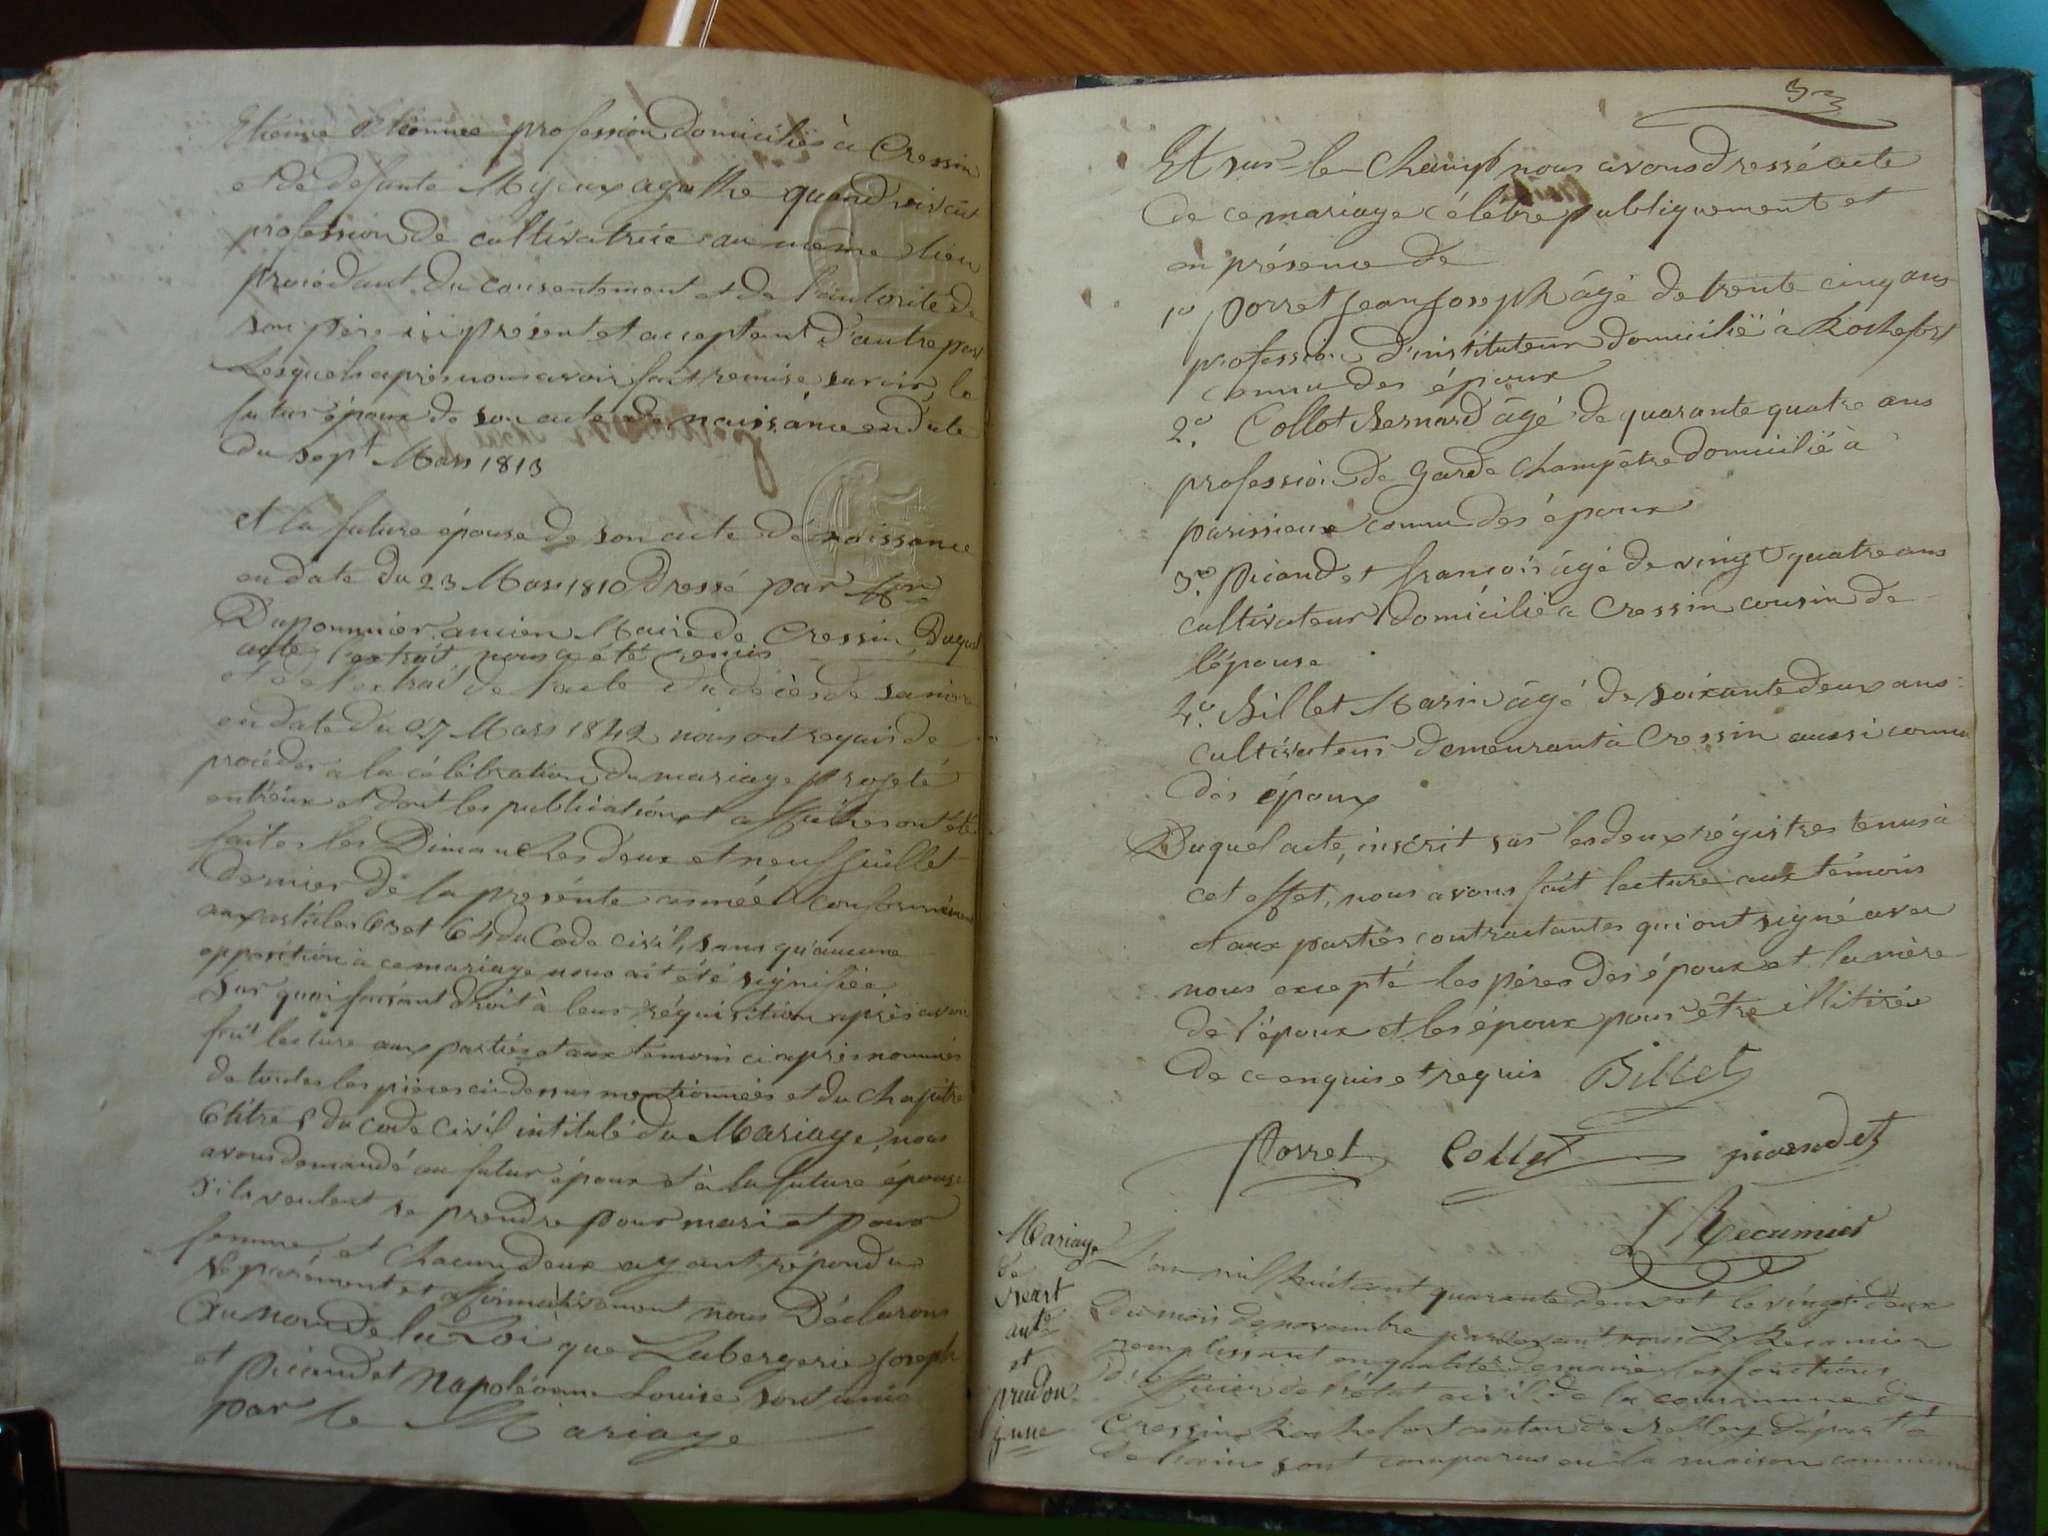 Etienne profession domiciliés à Cressin
et de defunte Myeux agathe quand vivait
profession de cultivatrice au même lieu
procédant du consentement et de l'autorité de
son père ici présent et acceptant d'autre part
Lesquels après nous avoir fait remise savoir, le
futur époux de son acte de naissance en date
du sept Mars 1813
et la future épouse de son acte de naissance
en date du 23 Mars 1810 dressé par
Dupommier ancien Maire de Cressin, Duquel
acte l'extrait nous a été remis
et de l'extrait de l'acte du décès de sa mère
en date du 27 Mars 1842 nous ont requis de
procéder à la célébration du mariage projeté
entr'eux et dont les publications et affiches ont été
faites les Dimanches deux et neuf Juillet
dernier de la présente année conformément
aux articles 63 et 64 du Code civil, sans qu'aucune
opposition à ce mariage nous ait été signifiée
Sur quoi faisant droit à leur réquisition après avoir
fait lecture aux parties et aux temoins ci après nommés
de toutes les pièces ci dessus mentionnées et du chapitre
6 titre 5 du code civil intitulé du Mariage, nous
avons demandé au futur époux et à la future épouse
s'ils veulent se prendre pour mari et pour
femme, et chacun deux ayant répondu
séparément et affirmativement nous Déclarons
Au nom de la Loi que Labergerie Joseph
et Picaudet Napoléonne Louise sont unis
par le Mariage
33
Et sur-le-champ nous avons dressé acte
de ce mariage célébré publiquement et
en présence de
1º porret Jean Joseph âgé de trente cinq ans
profession d'instituteur domicilié à Rochefort
connu des époux
2º. Collot Bernard âgé de quarante quatre ans
profession de garde champêtre domicilié à
parissieux connu des époux
3º. picaudet françois âgé de vingt quatre ans
cultivateur domicilié à Cressin cousin de
l'épouse
4º. Billet Marin âgé de soixante deux ans
cultivateur demeurant à Cressin aussi connu
des époux
Duquel acte, inscrit sur les deux régistres tenus à
cet effet, nous avons fait lecture aux témoins
et aux parties contractantes qui ont signé avec
nous excepté les péres des époux et la mère
de l'époux et les époux pour être illitirés
de ce enquis et requis Billet
Porret Collot picaudet
Recamier
Mariage
de
et
prudon
L'an mil huit cent quarante deux et le vingt deux
du mois de novembre pardevant nous Recamier
remplissant en qualité de maire les fonctions
d'officier de l'état civil de la commune de
Cressin Rochefort canton de Belley départ
de l'ain sont comparus en la maison commune